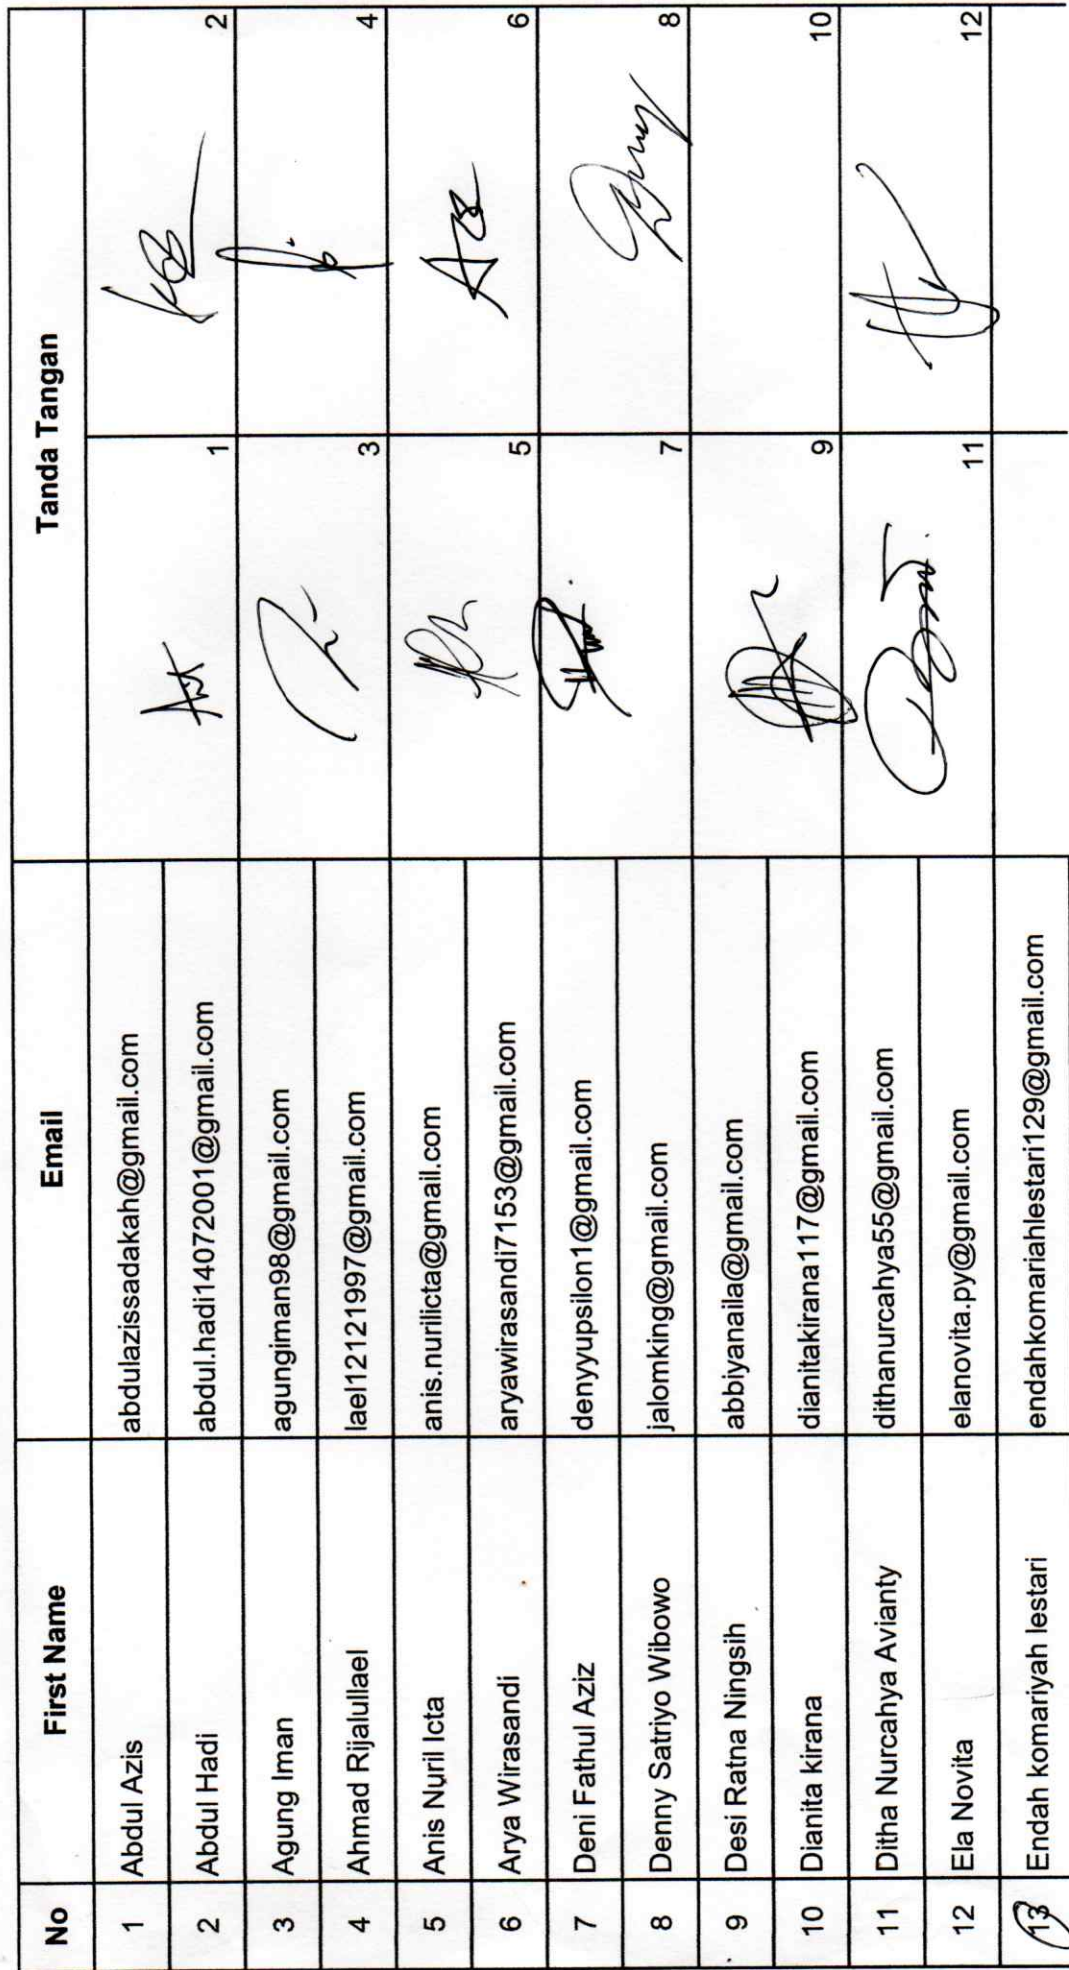 No First Name Email Tanda Tangan
1 Abdul Azis abdulazissadakah@gmail.com 1 2
2 Abdul Hadi abdul.hadi14072001@gmail.com
3 Agung Iman agungiman98@gmail.com 3 4
4 Ahmad Rijalullael lael12121997@gmail.com
5 Anis Nuril Icta anis.nurilicta@gmail.com 5 6
6 Arya Wirasandi aryawirasandi7153@gmail.com
7 Deni Fathul Aziz denyyupsilon1@gmail.com 7 8
8 Denny Satriyo Wibowo jalomking@gmail.com
9 Desi Ratna Ningsih abbiyanaila@gmail.com 9 10
10 Dianita kirana dianitakirana117@gmail.com
11 Ditha Nurcahya Avianty dithanurcahya55@gmail.com 11 12
12 Ela Novita elanovita.py@gmail.com
13 Endah komariyah lestari endahkomariahlestari129@gmail.com